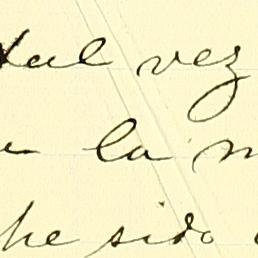 tal vez
la
he sido